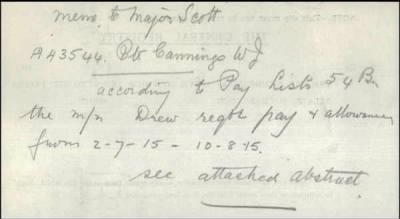 memo to Major Scott
A43544. Pte Cannings W J
according to Pay Lists 54 Bn
the m/n Drew regtl pay & allowances
from 2-7-15 - 10-8-15.
see attached abstract